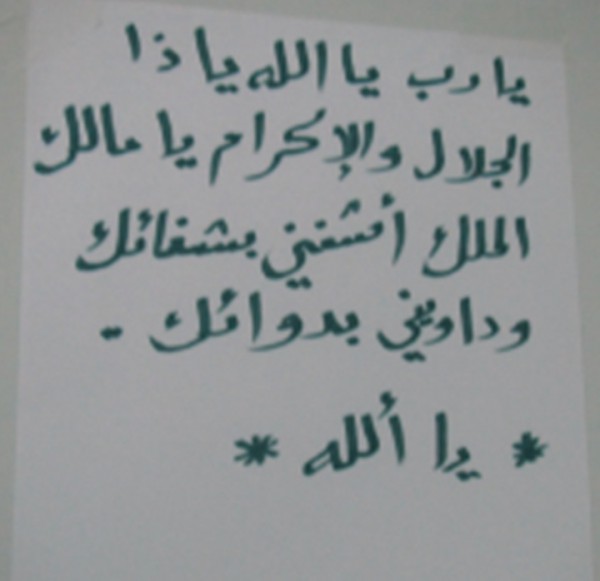 يا رب يا الله يا ذا
الجلال والإكرام يا مالك
الملك أشفني بشفائك
وداويني بدوائك -
* يا ألله *